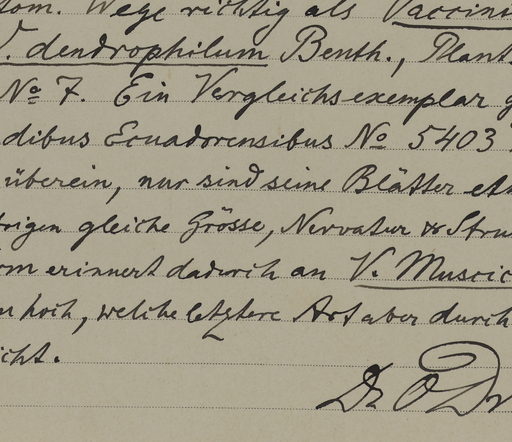 tom. Wege richtig als Vaccini
V. dendrophilum Benth., Plant
No 7. Ein Vergleichsexemplar g
dibus Ecuadorensibus No 5403
überein, nur sind seine Blätter et
brigen gleiche Grösse, Nervatur & Stru
rm erinnert dadurch an V. Muscic
er hoch, welche letztere Art aber durch
icht.
Dr O Dr